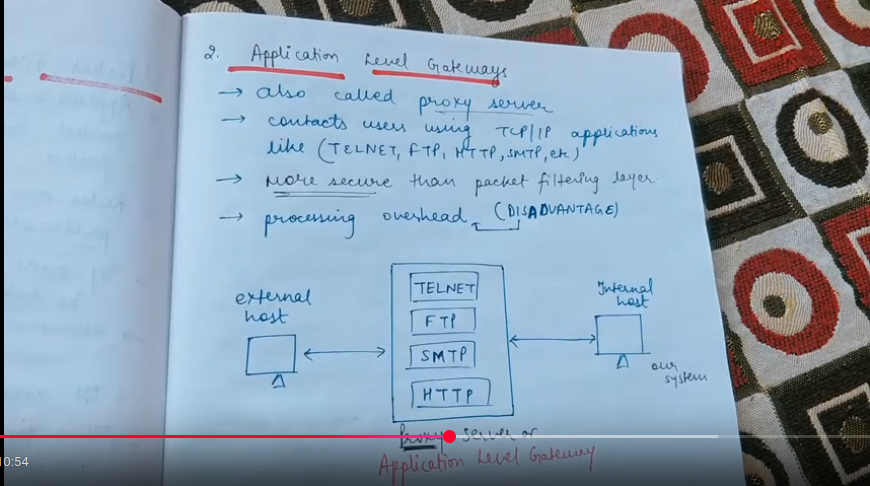 2. Application Level Gateways
→ also called proxy server
→ contacts users using TCP/IP applications
like (TELNET, FTP, HTTP, SMTP, etc)
→ More secure than packet filtering layer
→ processing overhead (DISADVANTAGE)
external
host
TELNET
FTP
SMTP
HTTP
Internal
host
our
system
Proxy server or
Application Level Gateway
10:54